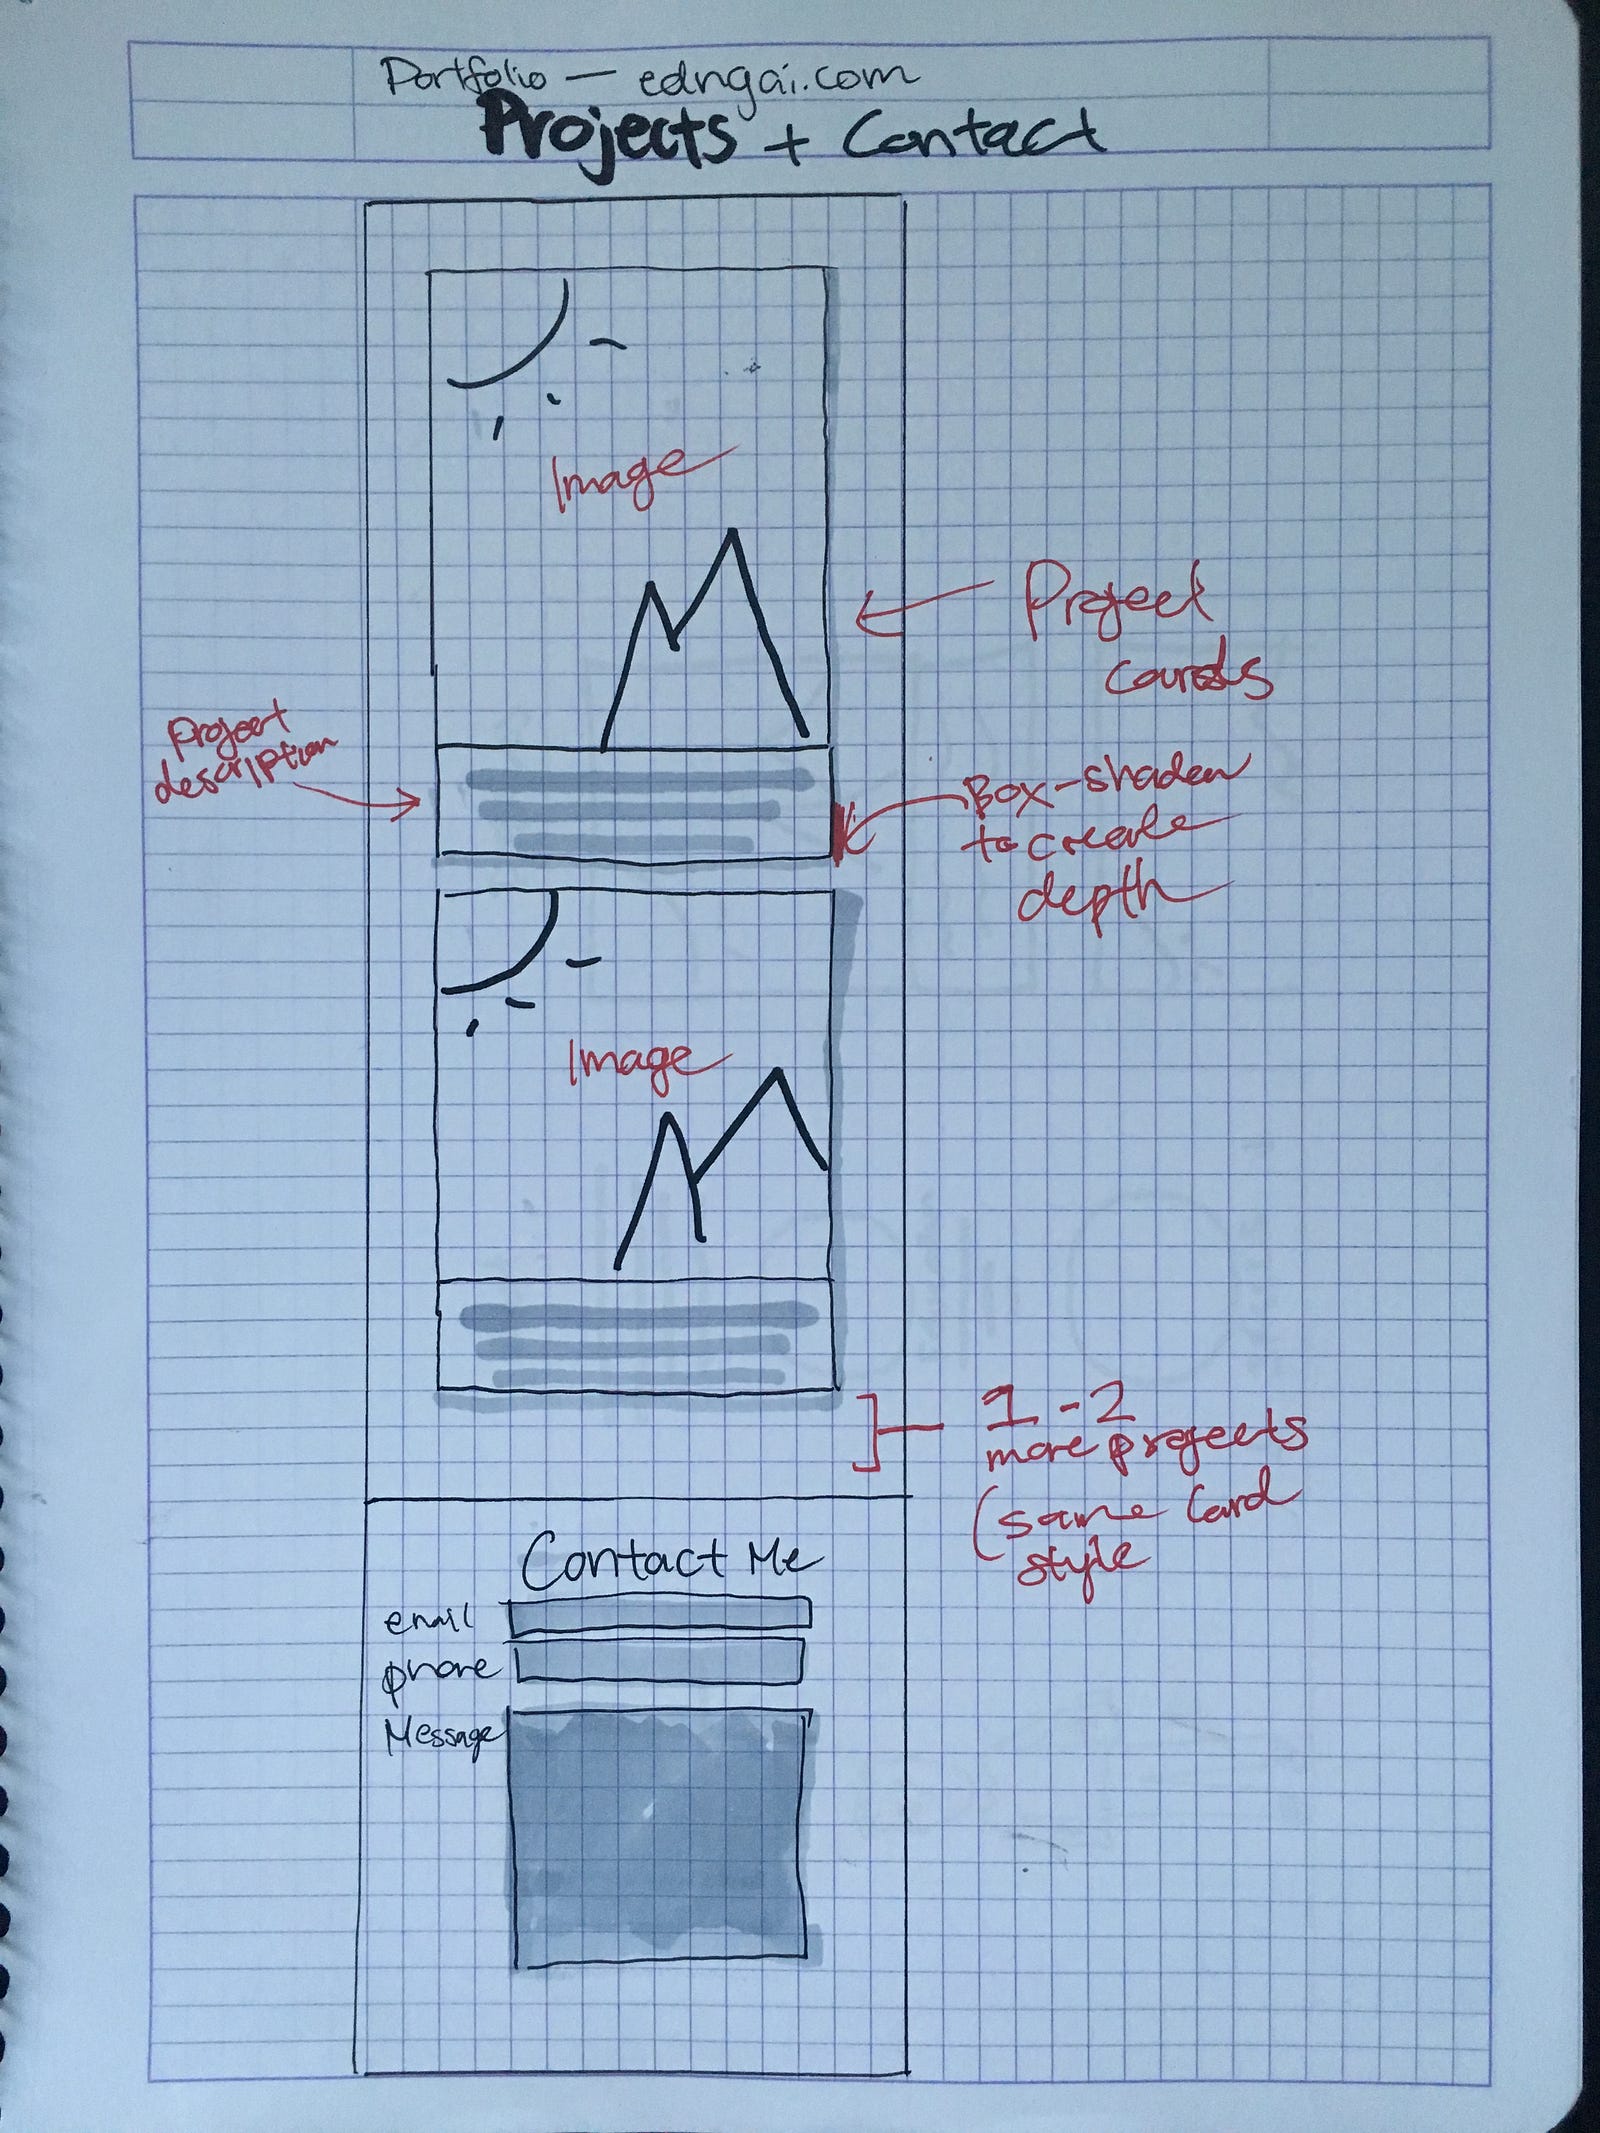 Portfolio — edngai.com
Projects + Contact
Image
Project
cards
project
description
Box-shadow
to create
depth
Image
1 - 2
more projects
(same card
style
Contact Me
email
phone
Message